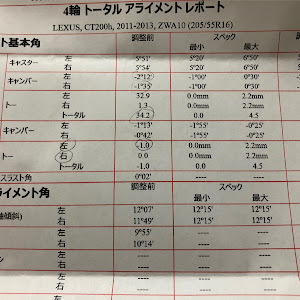 4輪 トータル アライメント レポート
LEXUS, CT200h, 2011-2013, ZWA10 (205/55R16)
ト基本角 調整前 スペック
最小 最大
キャスター 左 5°51' 5°20' 6°50'
右 5°54' 5°20' 6°50'
キャンバー 左 -2°12' -1°00' 0°30'
右 -1°35' -1°00' 0°30'
トー 左 32.9 0.0mm 2.2mm
右 1.3 0.0mm 2.2mm
トータル 34.2 0.0 4.5
キャンバー 左 -1°13' -1°55' -0°25'
右 -0°42' -1°55' -0°25'
左 -1.0 0.0mm 2.2mm
トー 右 0.0 0.0mm 2.2mm
トータル -1.0 0.0 4.5
スラスト角 0°02' ---- ----
ライメント角 調整前 スペック
最小 最大
軸傾斜) 左 12°07' 12°15' 12°15'
右 11°49' 12°15' 12°15'
左 9°55' ---- ----
右 10°14' ---- ----
左 ---- ---- ----
右 ---- ---- ----
左 ---- ---- ----
右 ---- ---- ----